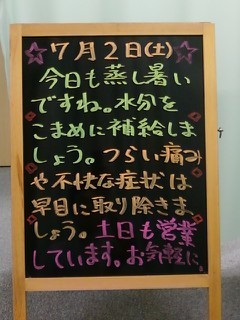 7月2日(土)
今日も蒸し暑い
ですね。水分を
こまめに補給しま
しょう。つらい痛み
や不快な症状は
早目に取り除きま
しょう。土日も営業
しています。お気軽に